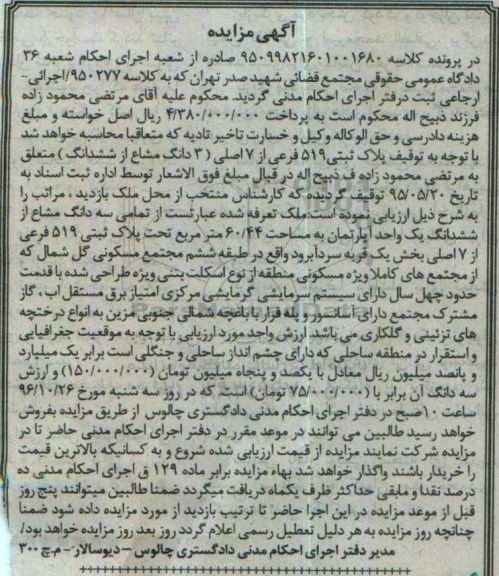 آگهی مزایده
در پرونده کلاسه ۹۵۰۹۹۸۲۱۶۰۱۰۰۱۶۸۰ صادره از شعبه اجرای احکام شعبه ۳۶
دادگاه عمومی حقوقی مجتمع قضائی شهید صدر تهران که به کلاسه ۹۵۰۲۷۷/اجرائی-
ارجاعی ثبت درفتر اجرای احکام مدنی گردید. محکوم علیه آقای مرتضی محمود زاده
فرزند ذبیح اله محکوم است به پرداخت ۴/۳۸۰/۰۰۰/۰۰۰ ریال اصل خواسته و مبلغ
هزینه دادرسی و حق الوکاله وکیل و خسارت تاخیر تادیه که متعاقبا محاسبه خواهد شد
با توجه به توقیف پلاک ثبتی ۵۱۹ فرعی از ۷ اصلی ( ۳ دانگ مشاع از ششدانگ ) متعلق
به مرتضی محمود زاده ف ذبیح اله در قبال مبلغ فوق الاشعار توسط اداره ثبت اسناد به
تاریخ ۹۵/۰۵/۲۰ توقیف گردیده که کارشناس منتخب از محل ملک بازدید ، مراتب را
به شرح ذیل ارزیابی نموده است:ملک تعرفه شده عبارتست از تمامی سه دانگ مشاع از
ششدانگ یک واحد آپارتمان به مساحت ۶۰/۴۴ متر مربع تحت پلاک ثبتی ۵۱۹ فرعی
از ۷ اصلی بخش یک قریه سردآبرود واقع در طبقه ششم مجتمع مسکونی گل شمال که
از مجتمع های کاملا ویژه مسکونی منطقه از نوع اسکلت بتنی ویژه طراحی شده با قدمت
حدود چهل سال دارای سیستم سرمایشی گرمایشی مرکزی امتیاز برق مستقل اب ، گاز
مشترک مجتمع دارای آسانسور و پله فرار با باغچه شمالی جنوبی مزین به انواع درختچه
های تزئینی و گلکاری می باشد. ارزش واحد مورد ارزیابی با توجه به موقعیت جغرافیایی
و استقرار در منطقه ساحلی که دارای چشم انداز ساحلی و جنگلی است برابر یک میلیارد
و پانصد میلیون ریال معادل با یکصد و پنجاه میلیون تومان (۱۵۰/۰۰۰/۰۰۰) و ارزش
سه دانگ آن برابر با (۷۵/۰۰۰/۰۰۰ تومان) است که در روز سه شنبه مورخ ۹۶/۱۰/۲۶
ساعت ۱۰صبح در دفتر اجرای احکام مدنی دادگستری چالوس از طریق مزایده بفروش
خواهد رسید طالبین می توانند در موعد مقرر در دفتر اجرای احکام مدنی حاضر تا در
مزایده شرکت نمایند مزایده از قیمت ارزیابی شده شروع و به کسانیکه بالاترین قیمت
را خریدار باشند واگذار خواهد شد بهاء مزایده برابر ماده ۱۲۹ ق اجرای احکام مدنی ده
درصد نقدا و مابقی حداکثر ظرف یکماه دریافت میگردد ضمنا طالبین میتوانند پنج روز
قبل از موعد مزایده در این اجرا حاضر تا ترتیب بازدید از مورد مزایده داده شود ضمنا
چنانچه روز مزایده به هر دلیل تعطیل رسمی اعلام گردد روز بعد روز مزایده خواهد بود/
مدیر دفتر اجرای احکام مدنی دادگستری چالوس – دیوسالار- م.چ ۳۰۰